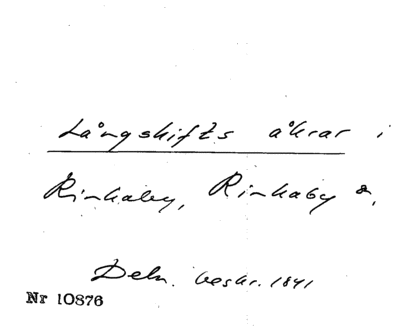 Långskifts åkrar i
Rinkaby, Rinkaby s,
Dels. beskr. 1841
Nr 10876